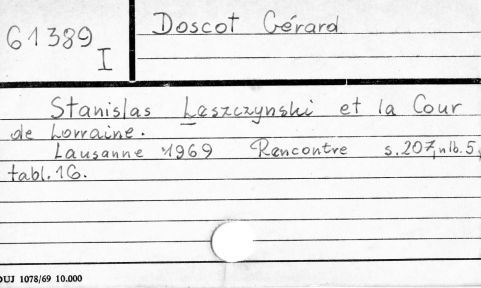 61389
I
Doscot Gérard
Stanislas Leszczynski et la Cour
de Lorraine.
Lausanne 1969 Rencontre s. 207, nlb. 5,
tabl. 16.
OUJ 1078/69 10.000